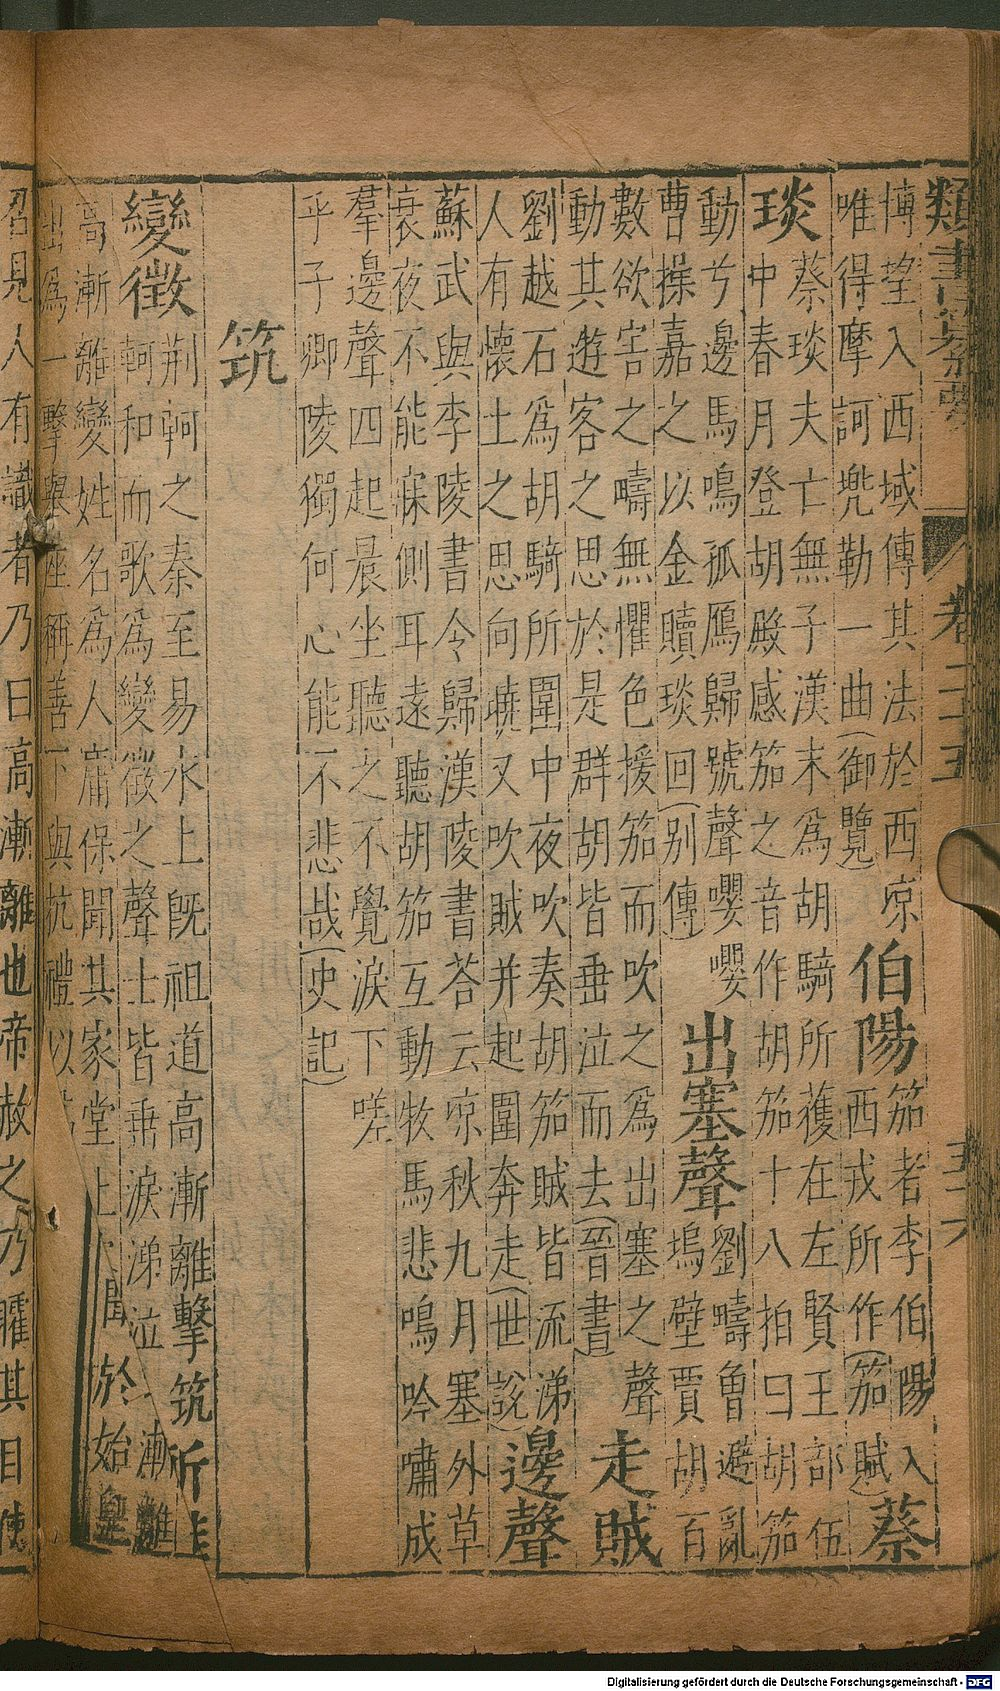 類書纂要 卷二十五 五十六
博望入西域傳其法於西凉
唯得摩訶兜勒一曲(御覽)
伯陽
笳者李伯陽入
西戎所作(笳賦)
蔡
琰
蔡琰夫亡無子漢末為胡騎所獲在左賢王部伍
中春月登胡殿感笳之音作胡笳十八拍曰胡笳
動兮邊馬鳴孤鴈歸號聲嚶嚶
曹操嘉之以金贖琰回(別傳)
出塞聲
劉疇曾避亂
塢壁賈胡百
數欲害之疇無懼色援笳而吹之為出塞之聲
動其遊客之思於是群胡皆垂泣而去(晉書)
走賊
劉越石為胡騎所圍中夜吹奏胡笳賊皆流涕
人有懷土之思向曉又吹賊并起圍奔走(世說)
邊聲
蘇武與李陵書令歸漢陵書荅云凉秋九月塞外草
衰夜不能寐側耳遠聽胡笳互動牧馬悲鳴吟嘯成
羣邊聲四起晨坐聽之不覺淚下嗟
乎子卿陵獨何心能不悲哉(史記)
筑
變徵
荆軻之秦至易水上既祖道高漸離擊筑
軻和而歌為變徵之聲士皆垂淚涕泣
高漸離變姓名為人庸保聞其家堂上
出為一擊舉座稱善下與抗禮以
聞於始皇
召見人有識者乃曰高漸離也帝赦之乃矐其目使
Digitalisierung gefördert durch die Deutsche Forschungsgemeinschaft - DFG